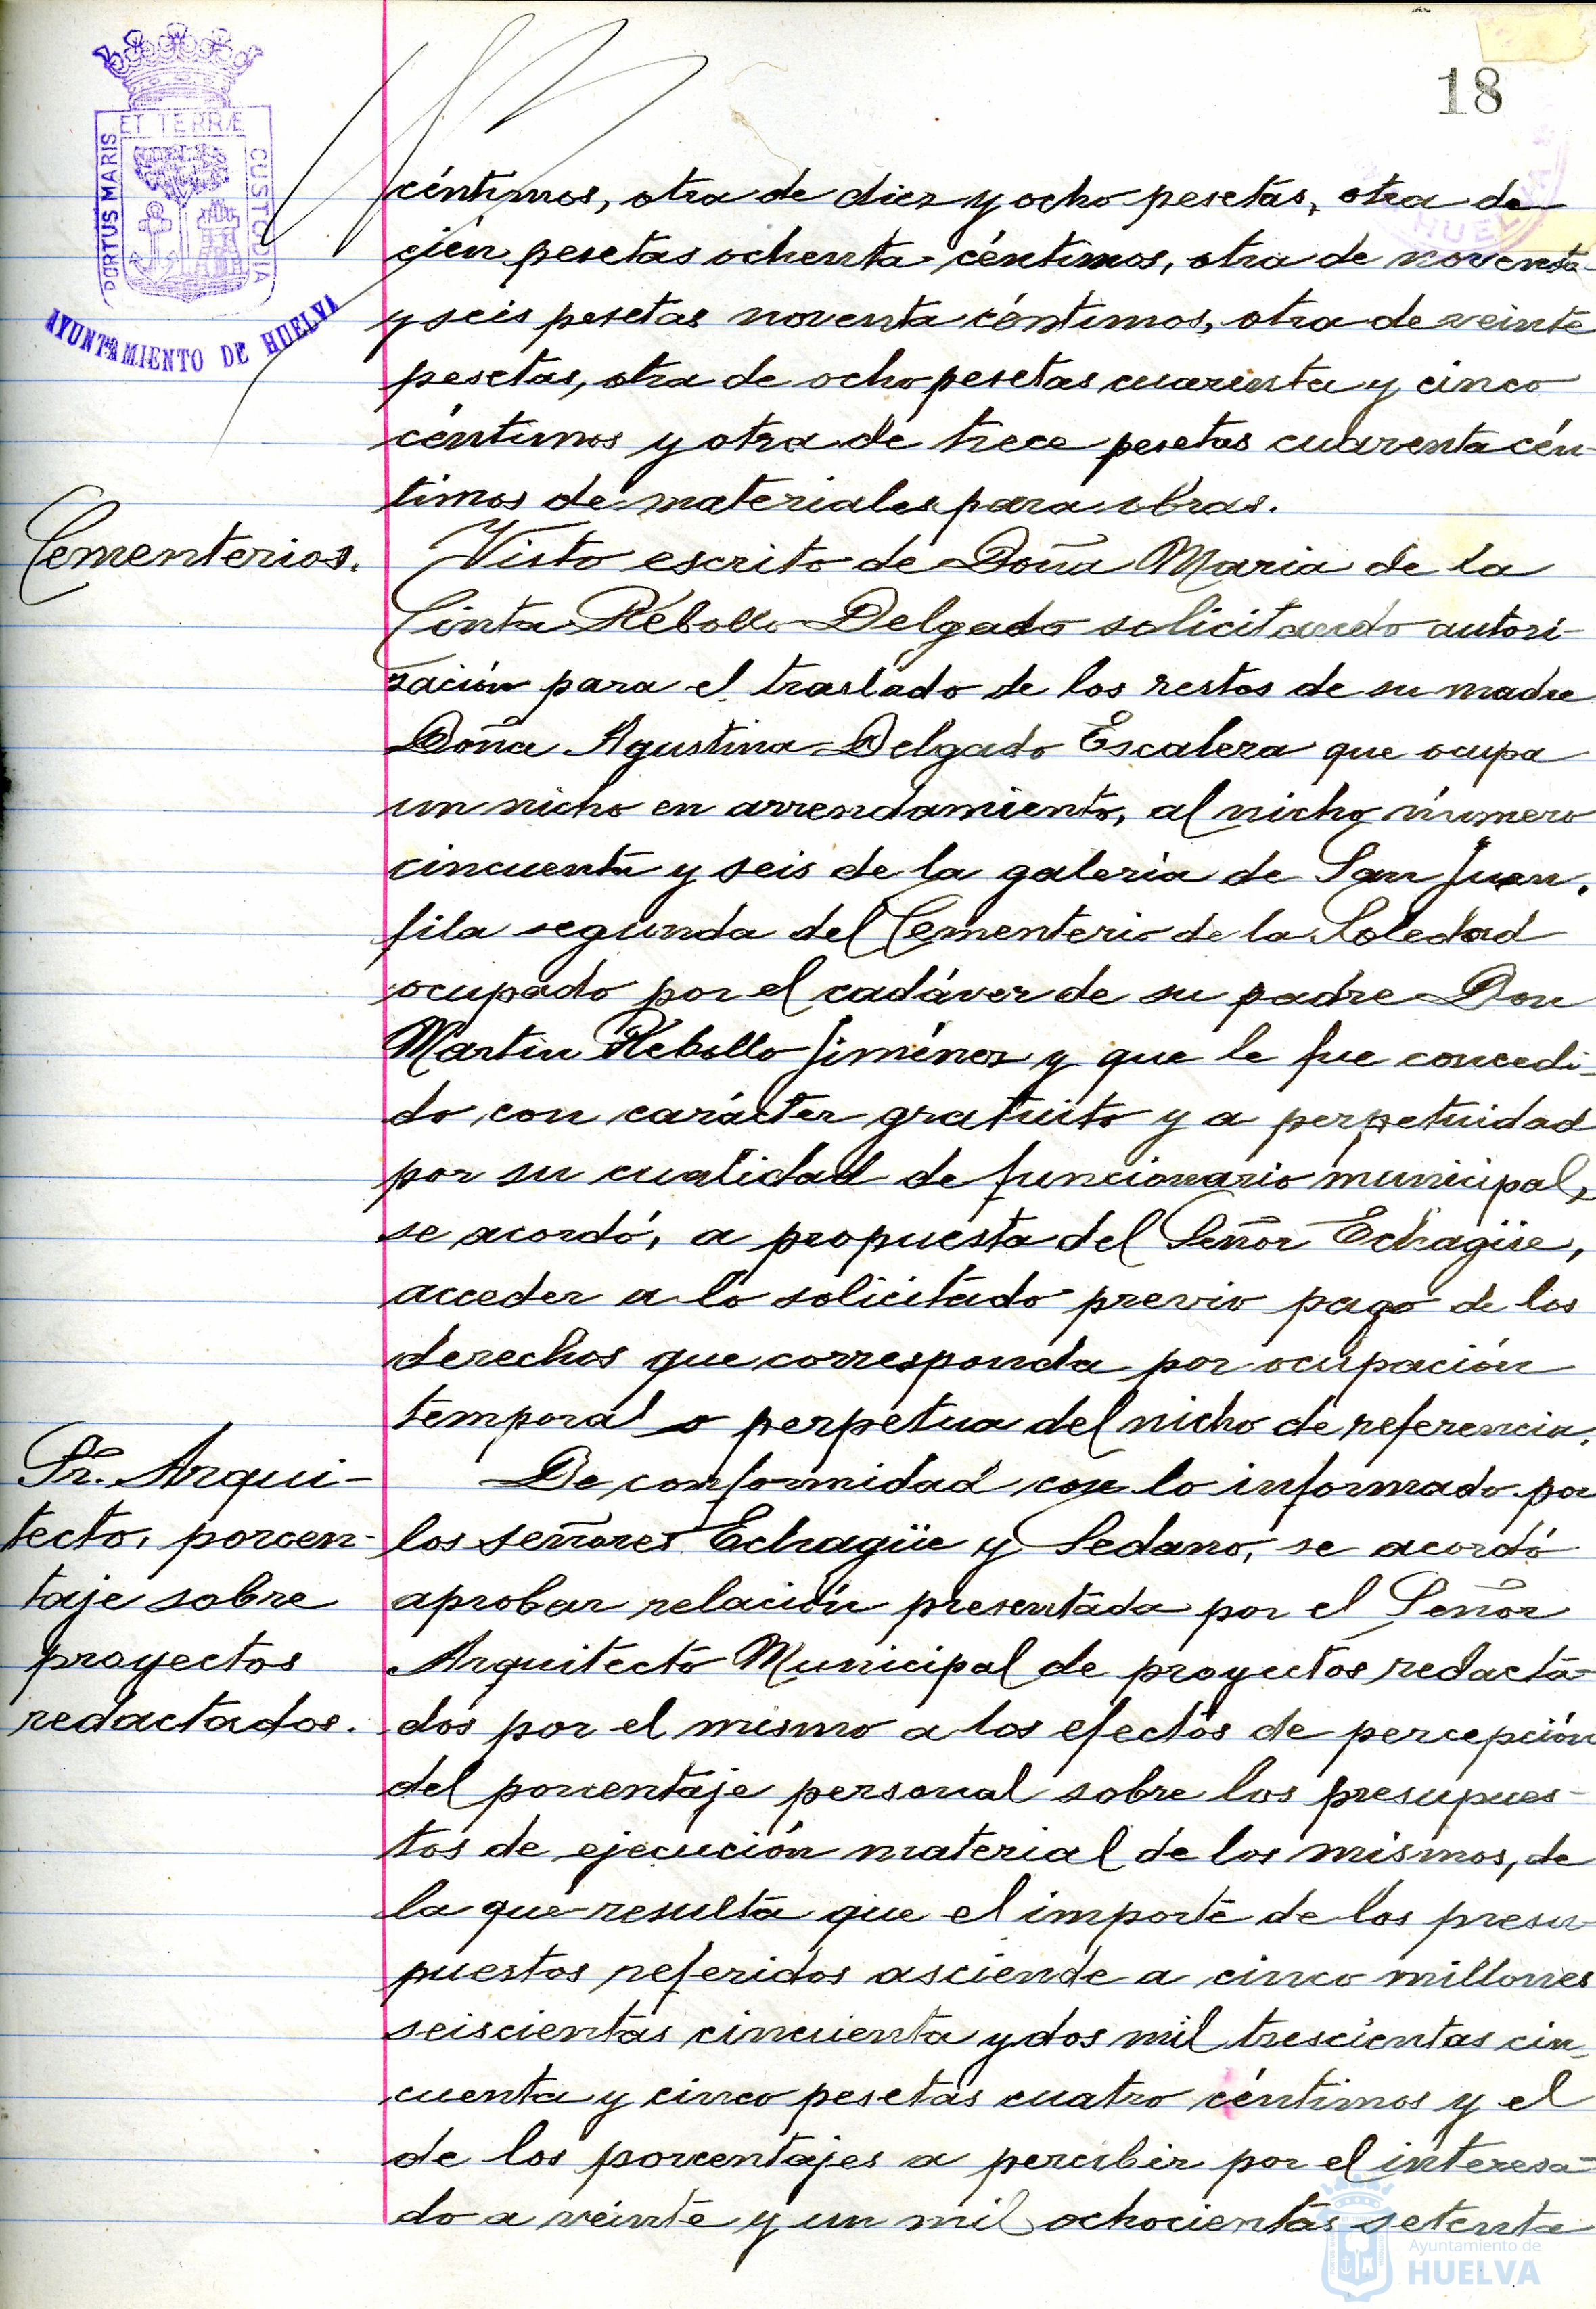 18
ET TERRÆ
PORTUS MARIS
CUSTODIA
AYUNTAMIENTO DE HUELVA
céntimos, otra de diez y ocho pesetas, otra de
cien pesetas ochenta céntimos, otra de noventa
y seis pesetas noventa céntimos, otra de veinte
pesetas, otra de ocho pesetas cuarenta y cinco
céntimos y otra de trece pesetas cuarenta cén-
timos de materiales para obras.
Cementerios.
Visto escrito de Doña Maria de la
Cinta Rebollo Delgado solicitando autori-
zación para el traslado de los restos de su madre
Doña Agustina Delgado Escalera que ocupa
un nicho en arrendamiento, al nicho número
cincuenta y seis de la galeria de San Juan,
fila segunda del Cementerio de la Soledad
ocupado por el cadáver de su padre Don
Martin Rebollo Jiménez y que le fue concedi-
do con carácter gratuito y a perpetuidad
por su cualidad de funcionario municipal,
se acordó, a propuesta del Señor Echagüe,
acceder a lo solicitado previo pago de los
derechos que corresponda por ocupación
temporal o perpetua del nicho de referencia.
Sr. Arqui-
tecto, porcen-
taje sobre
proyectos
redactados.
De conformidad con lo informado por
los señores Echagüe y Sedano, se acordó
aprobar relación presentada por el Señor
Arquitecto Municipal de proyectos redacta-
dos por el mismo a los efectos de percepción
del porcentaje personal sobre los presupues-
tos de ejecución material de los mismos, de
la que resulta que el importe de los presu-
puestos referidos asciende a cinco millones
seiscientas cincuenta y dos mil trescientas cin-
cuenta y cinco pesetas cuatro céntimos y el
de los porcentajes a percibir por el interesa-
do a veinte y un mil ochocientas setenta
Ayuntamiento de
HUELVA